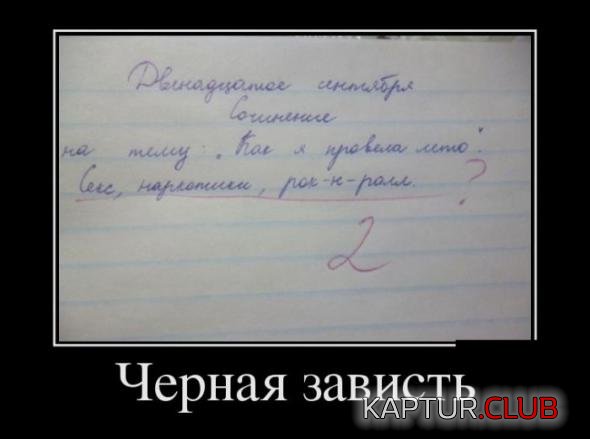 Двенадцатое сентября
Сочинение
на тему: „Как я провела лето".
Секс, наркотики, рок-н-ролл. ?
2
Черная зависть
KAPTUR.CLUB